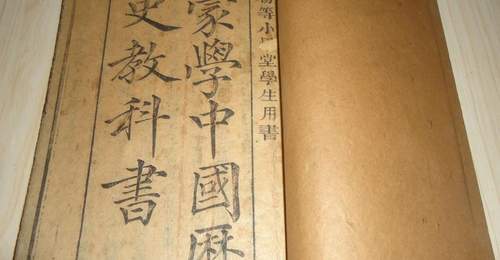 等小堂學生用書
蒙學中國歷
史教科書